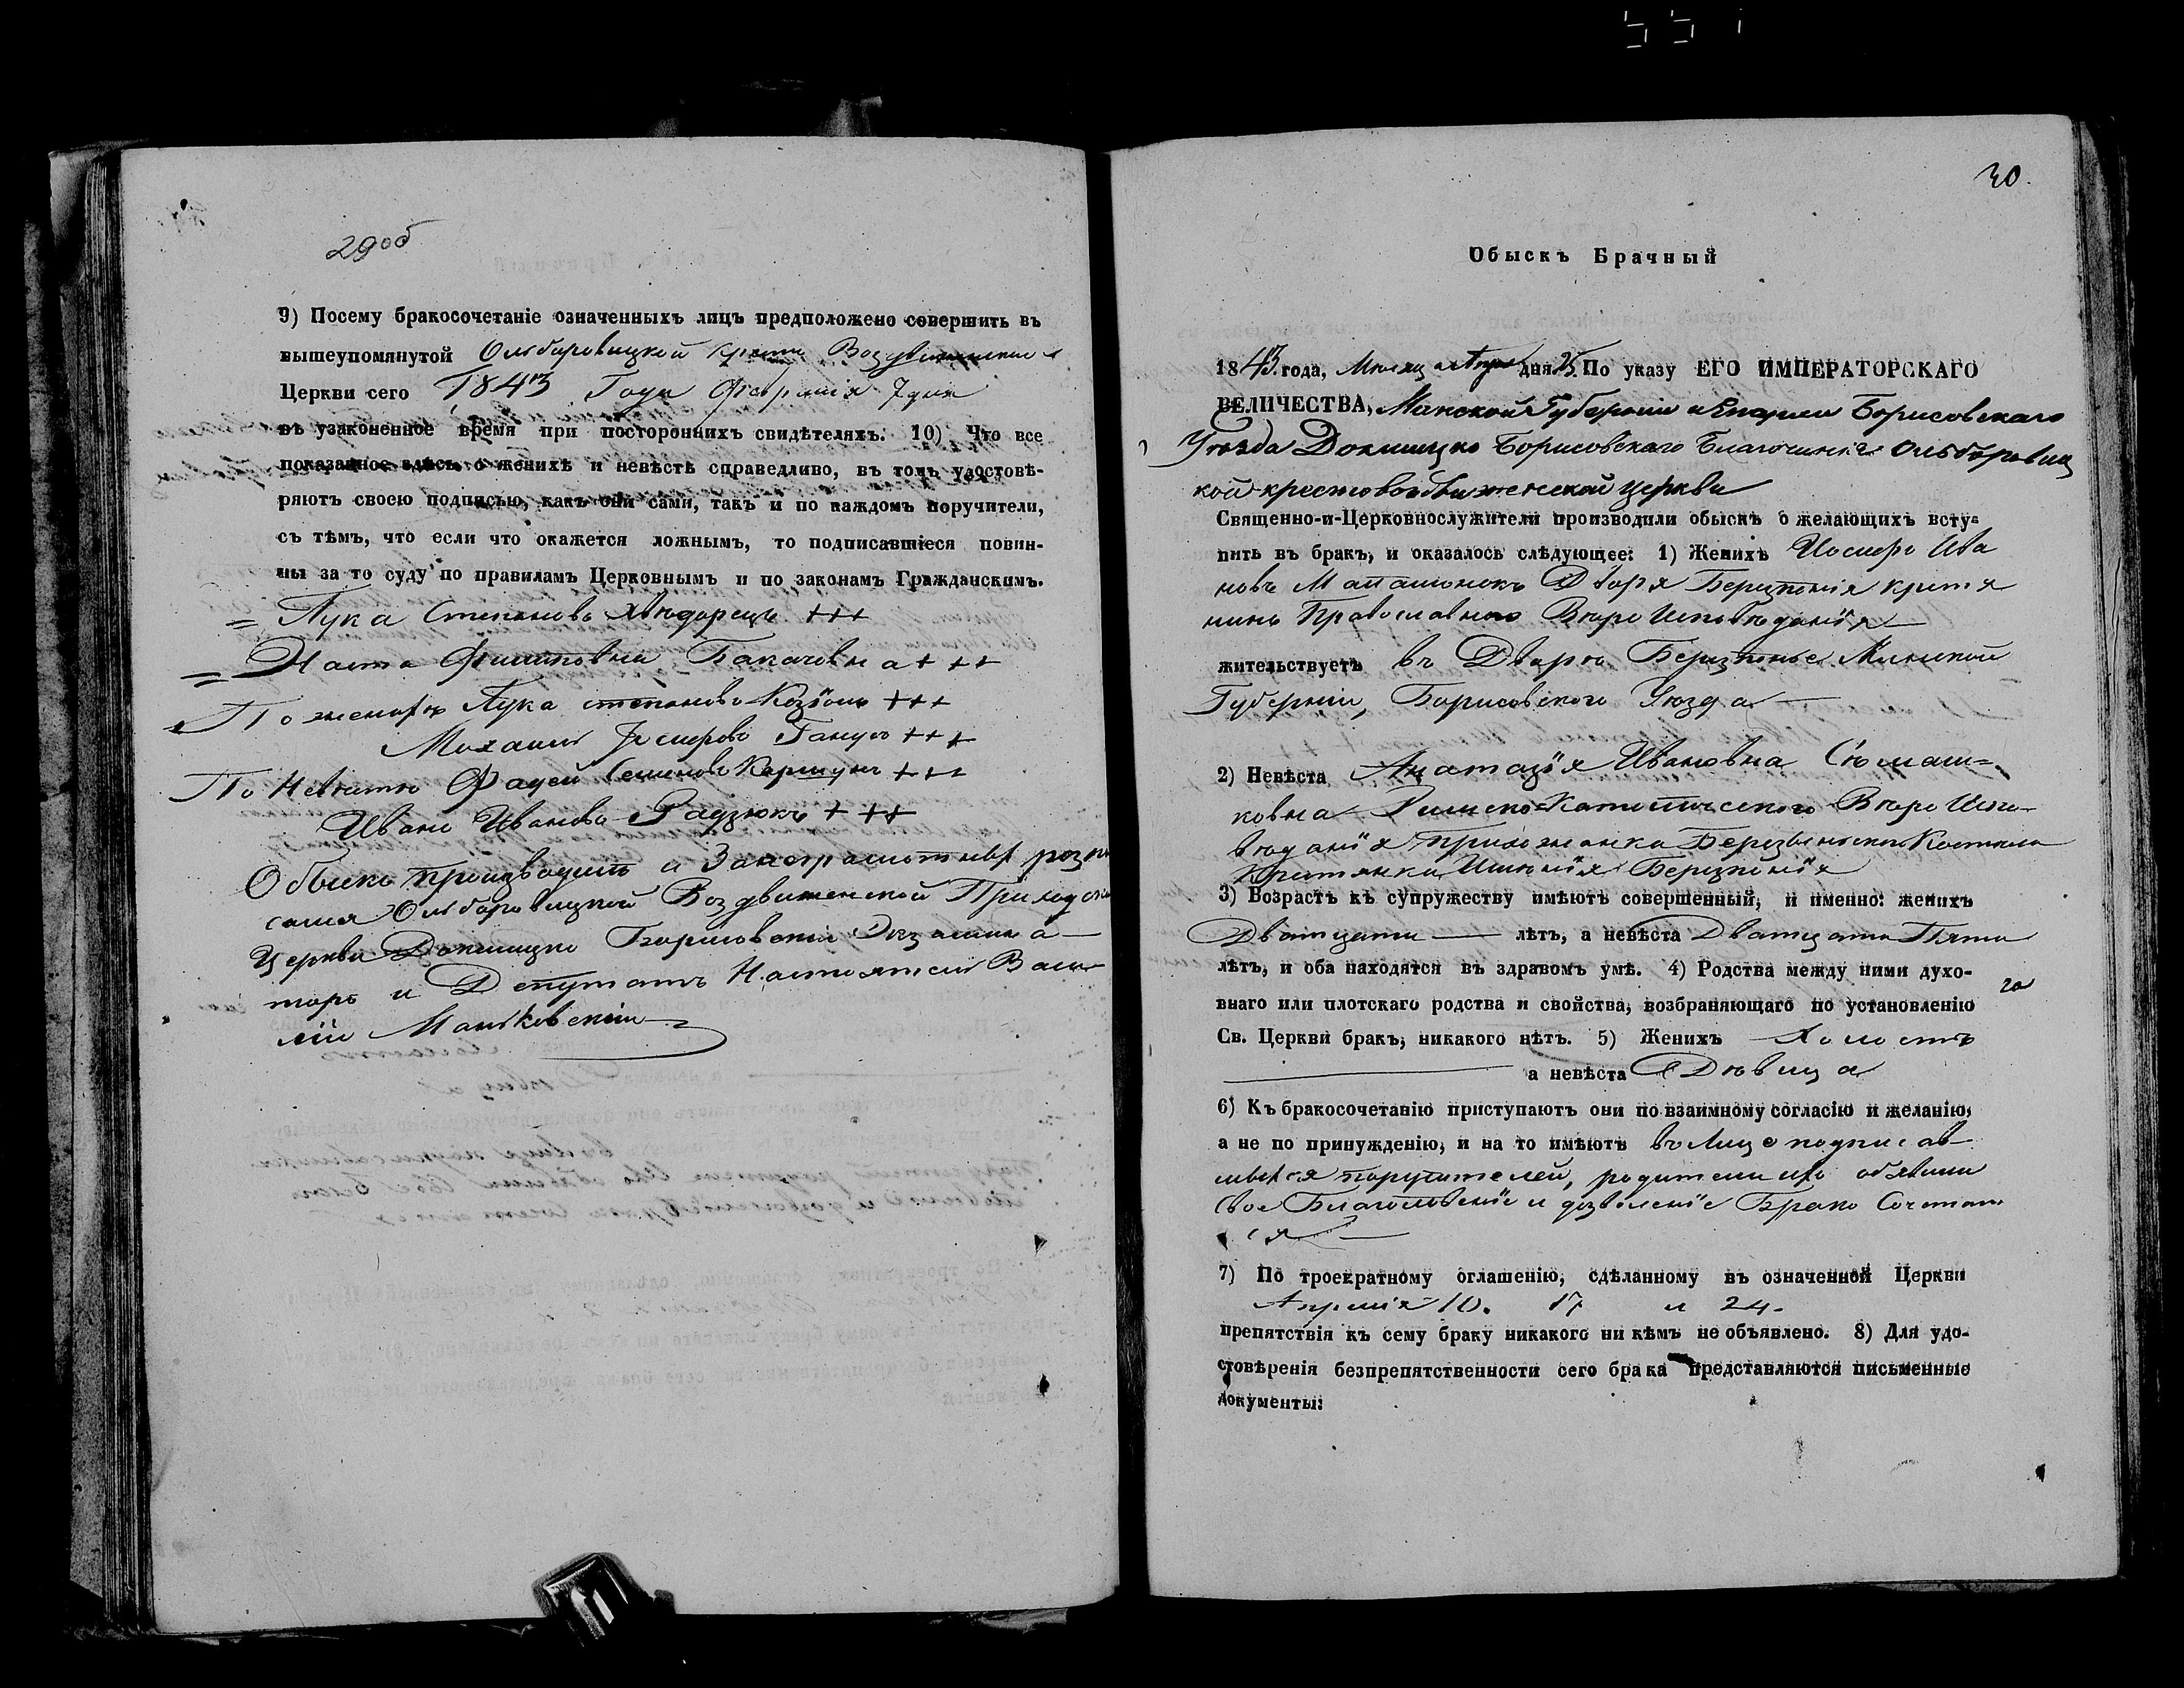 29 об
9) Посему бракосочетаніе означенныхъ лицъ предположено совершить въ
вышеупомянутой Ольборовицкой Кресто Воздвиженской
Церкви сего 1843 Года Февраля 7 дня
въ узаконенное время при постороннихъ свидѣтеляхъ. 10) Что все
показанное здѣсь о женихѣ и невѣстѣ справедливо, въ томъ удостовѣ-
ряютъ своею подписью, какъ они сами, такъ и по каждомъ поручители,
съ тѣмъ, что если что окажется ложнымъ, то подписавшіеся повин-
ны за то суду по правиламъ Церковнымъ и по законамъ Гражданскимъ.
Лука Степановъ +++
Наста Филиповна +++
По женихѣ Лука Степановъ Козіолъ +++
Михаилъ +++
По Невѣстѣ Фадей Семеновъ Коршунъ +++
Иванъ Ивановъ Радзюкъ +++
Обыскъ производилъ и За неграмотныхъ роспи
сался Ольборовицкой Воздвиженской Приходской
Церкви Докшицко Борисовскій Экзамина-
торъ и Депутатъ Настоятель Васи-
лій Маньковскій
30.
Обыскъ Брачный
1843 года, Месяца Апреля дня 25. По указу ЕГО ИМПЕРАТОРСКАГО
ВЕЛИЧЕСТВА, Минской Губерніи и Епархіи Борисовскаго
Уѣзда Докшицко Борисовскаго Благочинія Ольборовиц
кой крестовоздвиженской церкви
Священно-и-Церковнослужители производили обыскъ о желающихъ всту-
пить въ бракъ, и оказалось слѣдующее: 1) Женихъ Иосифъ Ива
новъ Двора Березконя
нинъ Православнаго Вѣро Исповѣданія
жительствуетъ въ Дворѣ Березконье Минской
Губерніи, Борисовского Уѣзда
2) Невѣста Анатазія Ивановна Сюмаш-
ковна Римско-Католическаго Вѣро Испо-
вѣданія прихожанка Костела
Именія Березконія
3) Возрастъ къ супружеству имѣютъ совершенный, и именно: женихъ
Дватцати лѣтъ, а невѣста Дватцати Пяти
лѣтъ, и оба находятся въ здравомъ умѣ. 4) Родства между ними духо-
внаго или плотскаго родства и свойства, возбраняющаго по установленію
Св. Церкви бракъ, никакого нѣтъ. 5) Женихъ Холостъ
а невѣста Дѣвица
6) Къ бракосочетанію приступаютъ они по взаимному согласію и желанію,
а не по принужденію, и на то имѣютъ въ Лице подписав-
шихся поручителей, родители ихъ объявили
свое Благословеніе и дозволеніе Брако Сочетат
ся
7) По троекратному оглашенію, сдѣланному въ означенной Церкви
Апреля 10. 17 и 24.
препятствія къ сему браку никакого ни кѣмъ не объявлено. 8) Для удо-
стовѣренія безпрепятственности сего брака представляются письменные
документы: